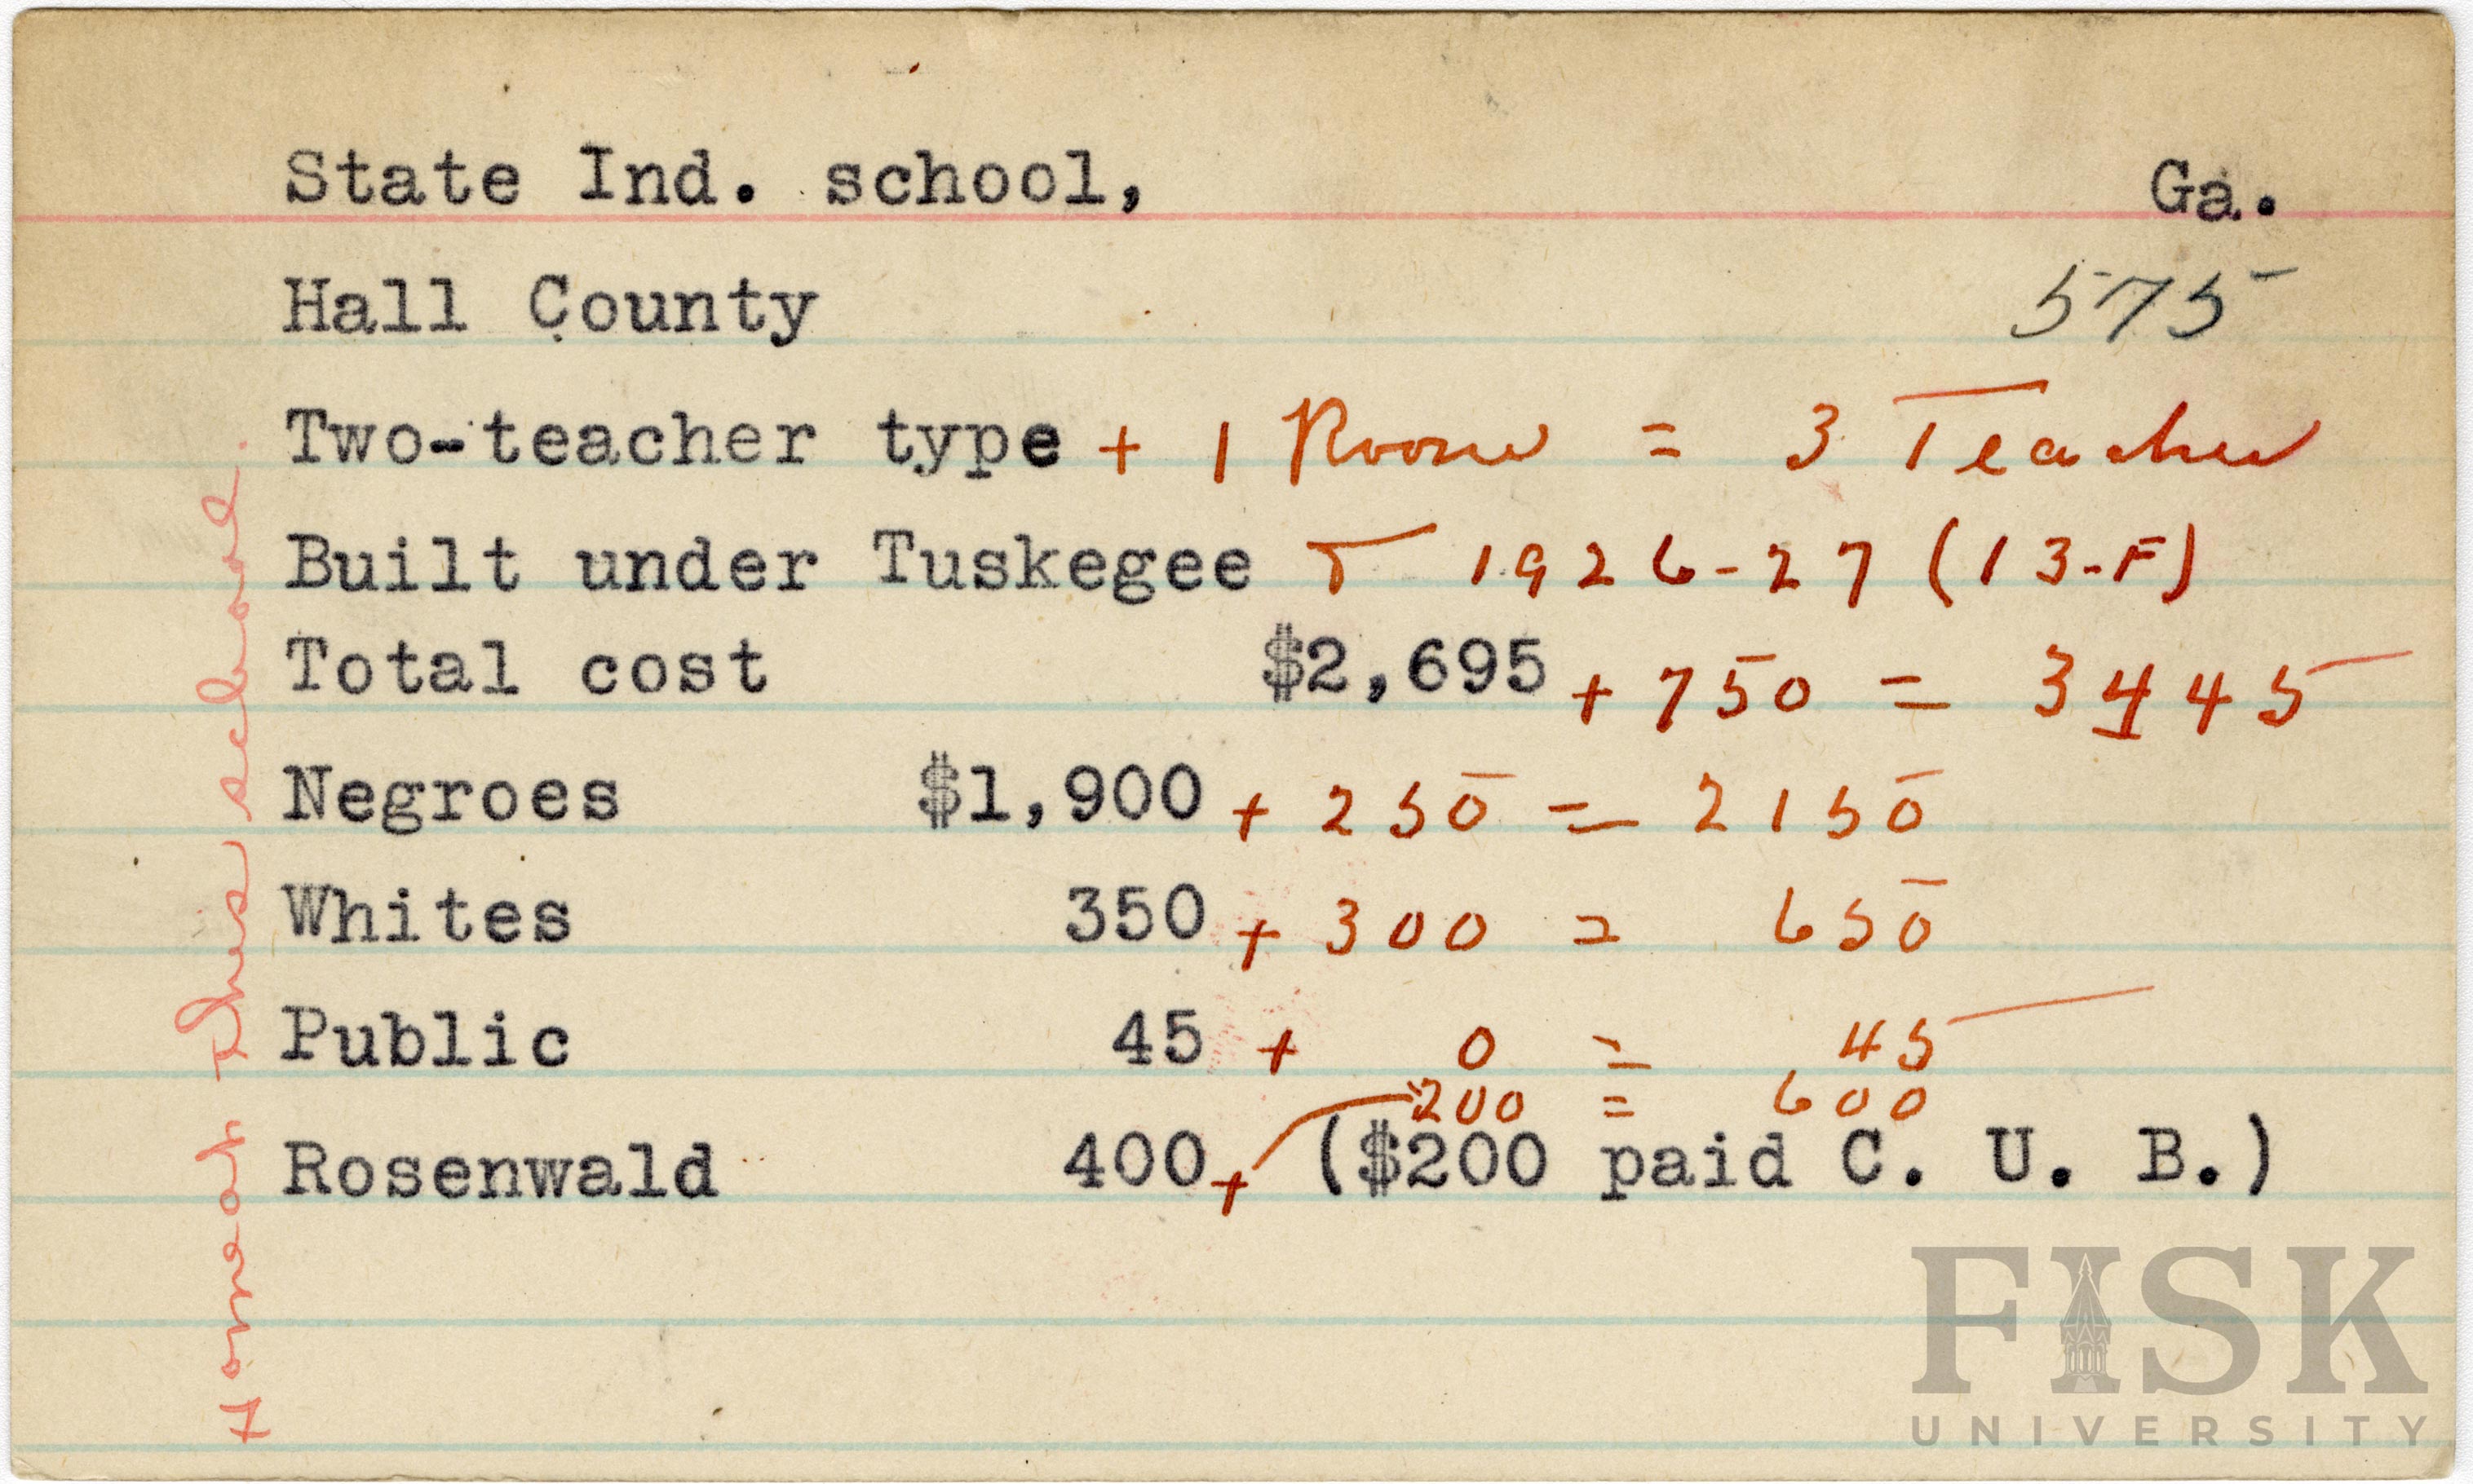 State Ind. school, Ga.
Hall County 575
Two-teacher type + 1 Room = 3 Teacher
Built under Tuskegee 1926-27 (13-F)
Total cost $2,695 + 750 = 3445
Negroes $1,900 + 250 = 2150
Whites 350 + 300 = 650
Public 45 + 0 = 45
200 = 600
Rosenwald 400 + ($200 paid C. U. B.)
school.
FISK
UNIVERSITY